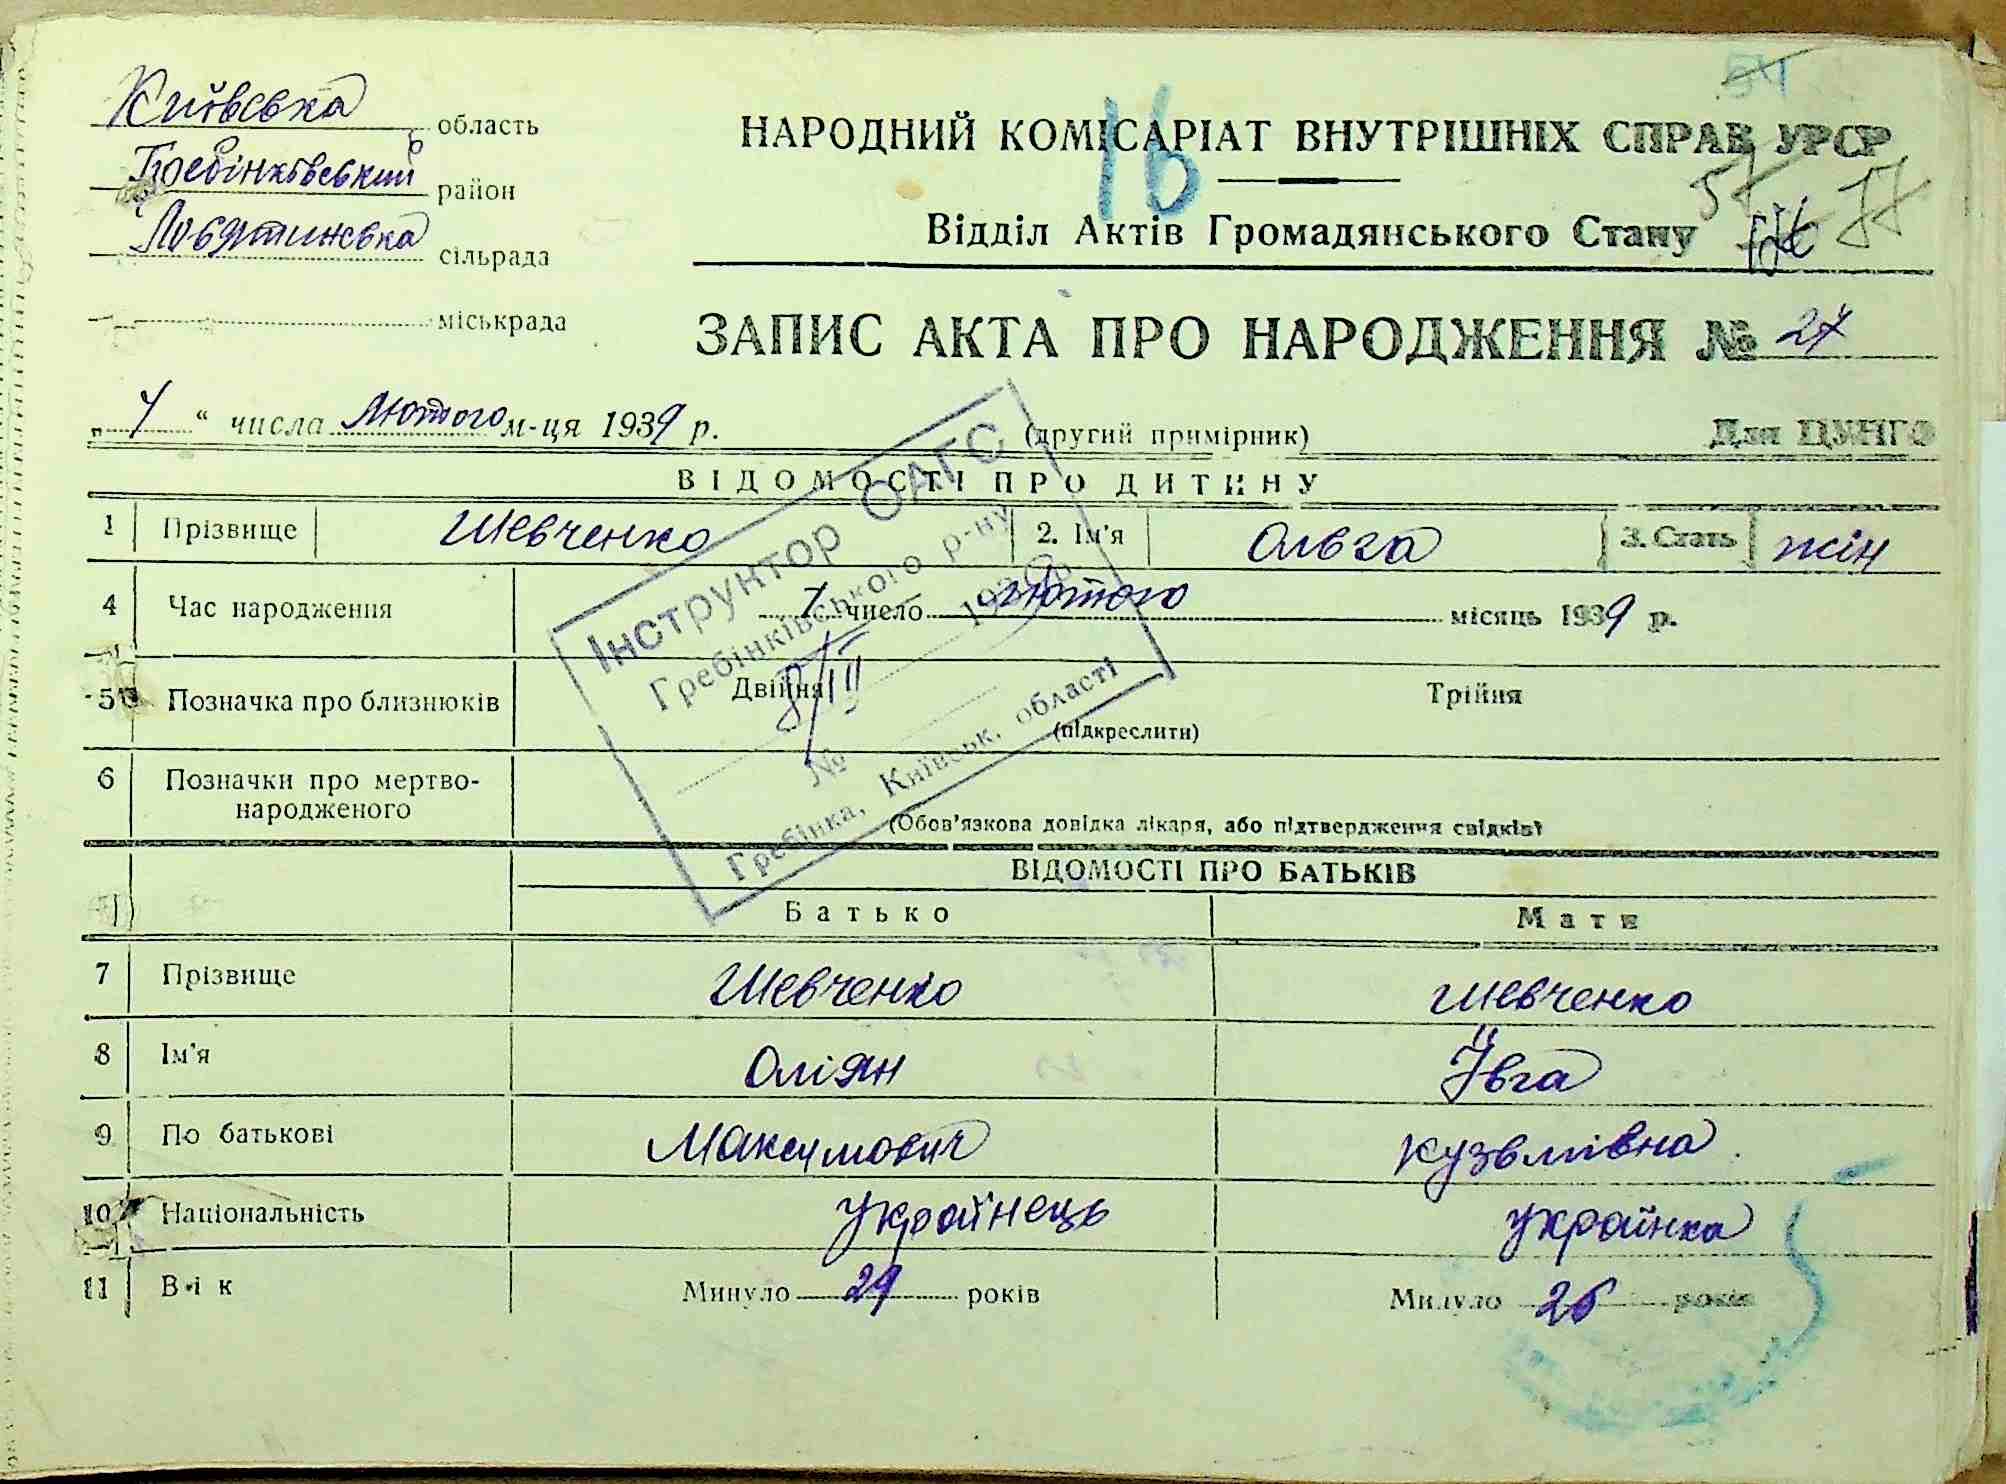 Київська область
Гребінківський район
Ловятинська сільрада
міськрада
54
16
НАРОДНИЙ КОМІСАРІАТ ВНУТРІШНІХ СПРАВ УРСР
57
77
Відділ Актів Громадянського Стану
ЗАПИС АКТА ПРО НАРОДЖЕННЯ № 27
„ “ числа Лютого м-ця 1939 р.
(другий примірник)
Для ЦУНГО
ВІДОМОСТІ ПРО ДИТИНУ
1 Прізвище Шевченко 2. Ім'я Ольга 3. Стать жін
4 Час народження 7 число Лютого місяць 1939 р.
5 Позначка про близнюків Двійня Трійня
(підкреслити)
6 Позначки про мертво-
народженого
(Обов'язкова довідка лікаря, або підтвердження свідків)
Інструктор ОАГС
Гребінківського р-ну
8/III 193 р.
№
Гребінка, Київськ. області
ВІДОМОСТІ ПРО БАТЬКІВ
Батько Мати
7 Прізвище Шевченко Шевченко
8 Ім'я Оліян Ївга
9 По батькові Максимович Кузьмівна
10 Національність Українець Українка
11 Вік Минуло 29 років Минуло 26 років